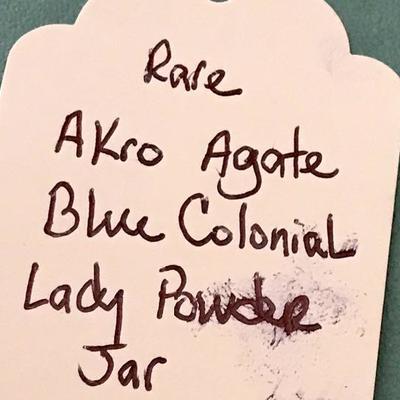 Rare
Akro Agate
Blue Colonial
Lady Powder
Jar